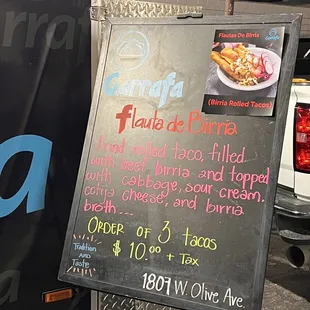 Garrafa
Flauta de Birria
Fried rolled taco, filled
with beef birria and topped
with cabbage, sour cream,
cotija cheese, and birria
broth...
ORDER OF 3 tacos
$10.00 + Tax
Tradition
and
Taste
1807 W. Olive Ave.
Flautas De Birria
(Birria Rolled Tacos)